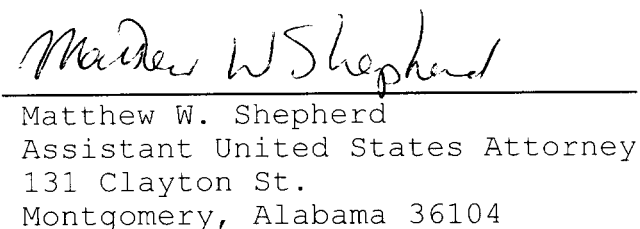 Matthew W Shepherd
Matthew W. Shepherd
Assistant United States Attorney
131 Clayton St.
Montgomery, Alabama 36104